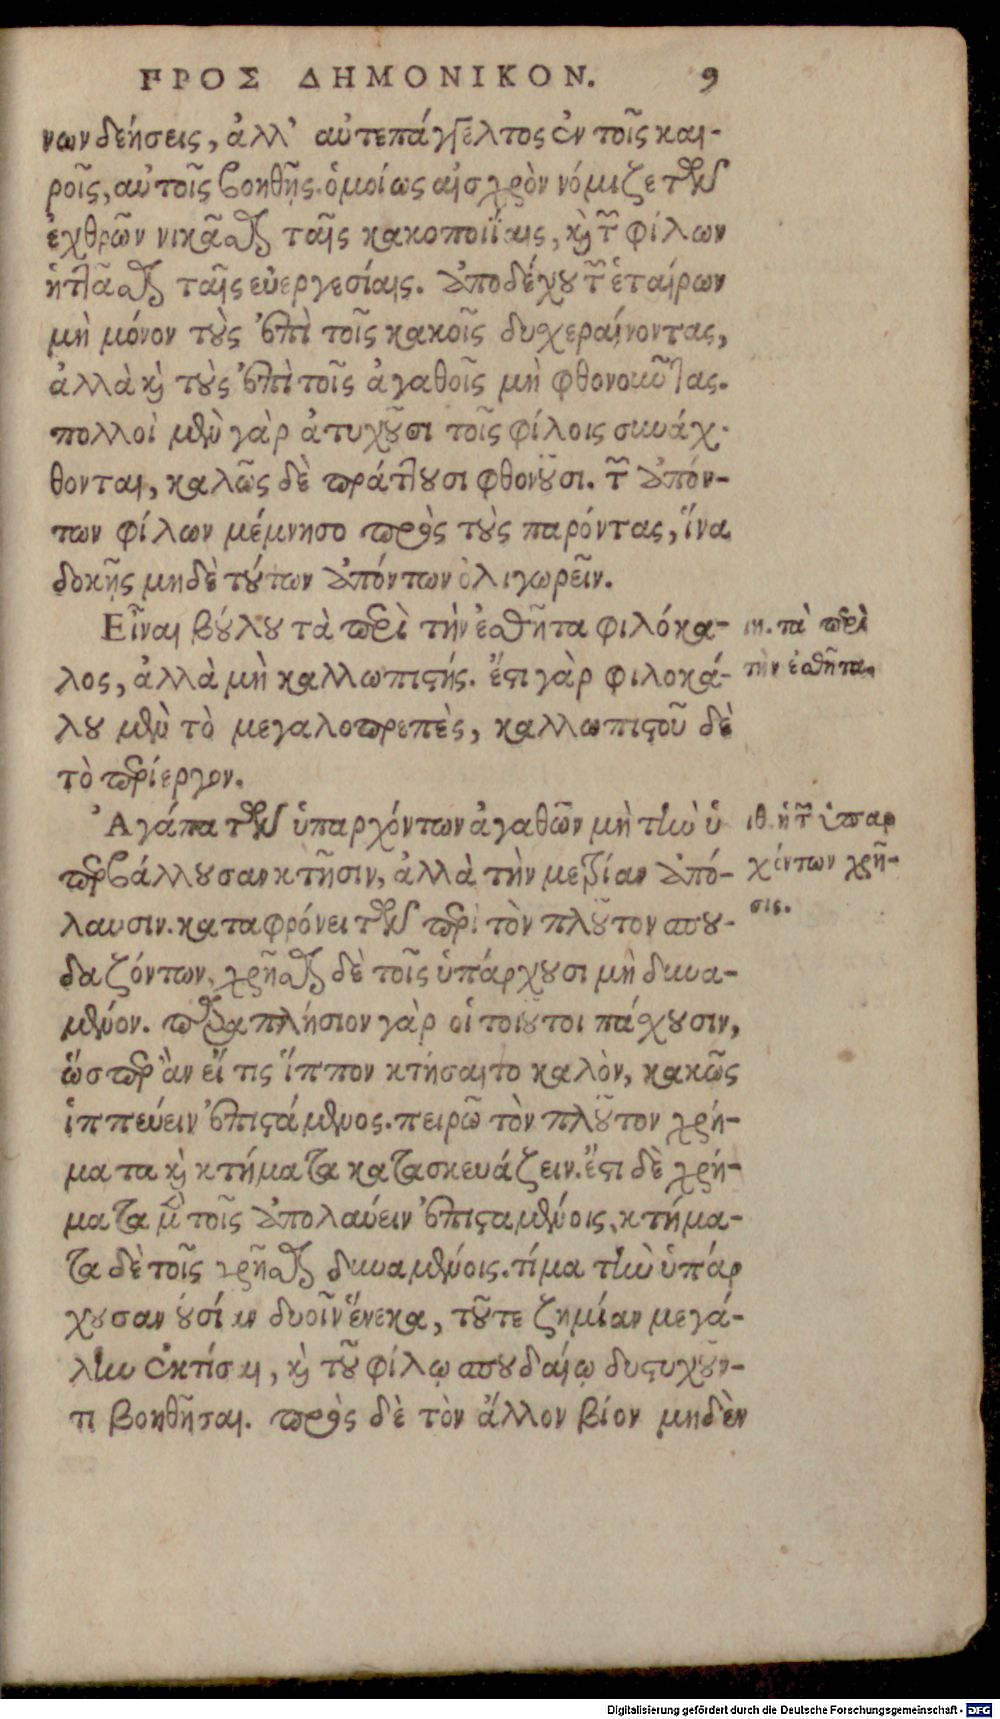 ΠΡΟΣ ΔΗΜΟΝΙΚΟΝ. 9
νων δεήσεις, ἀλλ' αὐτεπάγγελτος ἐν τοῖς και-
ροῖς, αὐτοῖς βοηθῇς. ὁμοίως αἰσχρὸν νόμιζε τῶν
ἐχθρῶν νικᾶσθαι ταῖς κακοποιΐαις, καὶ τῶν φίλων
ἡττᾶσθαι ταῖς εὐεργεσίαις. ἀποδέχου τῶν ἑταίρων
μὴ μόνον τοὺς ἐπὶ τοῖς κακοῖς δυσχεραίνοντας,
ἀλλὰ καὶ τοὺς ἐπὶ τοῖς ἀγαθοῖς μὴ φθονοῦντας.
πολλοὶ μὲν γὰρ ἀτυχοῦσι τοῖς φίλοις συνάχ-
θονται, καλῶς δὲ πράττουσι φθονοῦσι. τῶν ἀπόν-
των φίλων μέμνησο πρὸς τοὺς παρόντας, ἵνα
δοκῇς μηδὲ τούτων ἀπόντων ὀλιγωρεῖν.
Εἶναι βούλου τὰ περὶ τὴν ἐσθῆτα φιλόκα-
λος, ἀλλὰ μὴ καλλωπιστής. ἔστι γὰρ φιλοκά-
λου μὲν τὸ μεγαλοπρεπὲς, καλλωπιστοῦ δὲ
τὸ περίεργον.
Ἀγάπα τῶν ὑπαρχόντων ἀγαθῶν μὴ τὴν ὑ
περβάλλουσαν κτῆσιν, ἀλλὰ τὴν μετρίαν ἀπό-
λαυσιν. καταφρόνει τῶν περὶ τὸν πλοῦτον σπου-
δαζόντων, χρῆσθαι δὲ τοῖς ὑπάρχουσι μὴ δυνα-
μένων. παραπλήσιον γὰρ οἱ τοιοῦτοι πάσχουσιν,
ὥσπερ ἂν εἴ τις ἵππον κτήσαιτο καλὸν, κακῶς
ἱππεύειν ἐπιστάμενος. πειρῶ τὸν πλοῦτον χρή-
ματα καὶ κτήματα κατασκευάζειν. ἔστι δὲ χρή-
ματα μὲν τοῖς ἀπολαύειν ἐπισταμένοις, κτήμα-
τα δὲ τοῖς χρῆσθαι δυναμένοις. τίμα τὴν ὑπάρ
χουσαν οὐσίαν δυοῖν ἕνεκα, τοῦ τε ζημίαν μεγά-
λην ἐκτίσαι, καὶ τοῦ φίλῳ σπουδαίῳ δυστυχοῦν-
τι βοηθῆσαι. πρὸς δὲ τὸν ἄλλον βίον μηδὲν
ιη. τὰ περὶ
τὴν ἐσθῆτα.
ιθ. ἡ τῶν ὑπαρ
χόντων χρῆ-
σις.
Digitalisierung gefördert durch die Deutsche Forschungsgemeinschaft - DFG